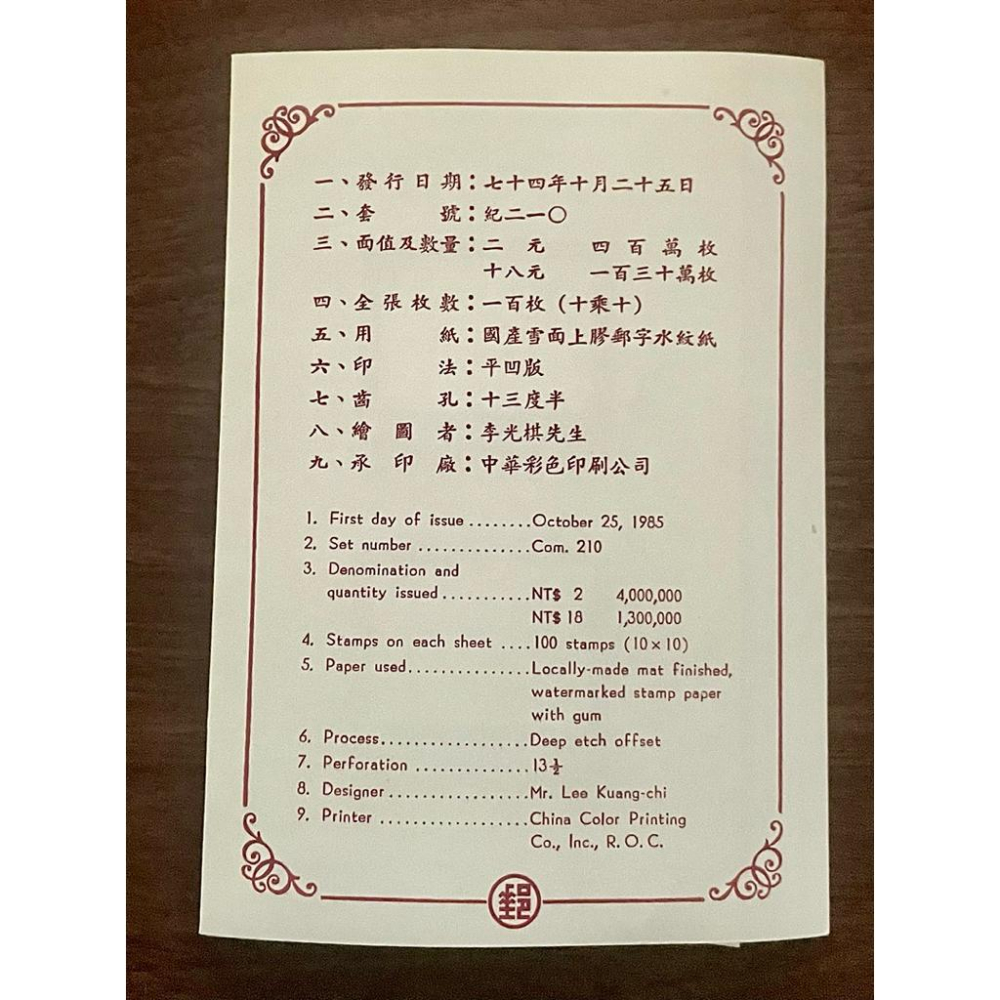 一、發行日期：七十四年十月二十五日
二、套號：紀二一〇
三、面值及數量：二元 四百萬枚
十八元 一百三十萬枚
四、全張枚數：一百枚（十乘十）
五、用紙：國產雪面上膠郵字水紋紙
六、印法：平凹版
七、齒孔：十三度半
八、繪圖者：李光棋先生
九、承印廠：中華彩色印刷公司
1. First day of issue ........October 25, 1985
2. Set number ..............Com. 210
3. Denomination and
quantity issued ...........NT$ 2 4,000,000
NT$ 18 1,300,000
4. Stamps on each sheet ....100 stamps (10×10)
5. Paper used...............Locally-made mat finished,
watermarked stamp paper
with gum
6. Process..................Deep etch offset
7. Perforation ..............13½
8. Designer.................Mr. Lee Kuang-chi
9. Printer ..................China Color Printing
Co., Inc., R. O. C.
郵